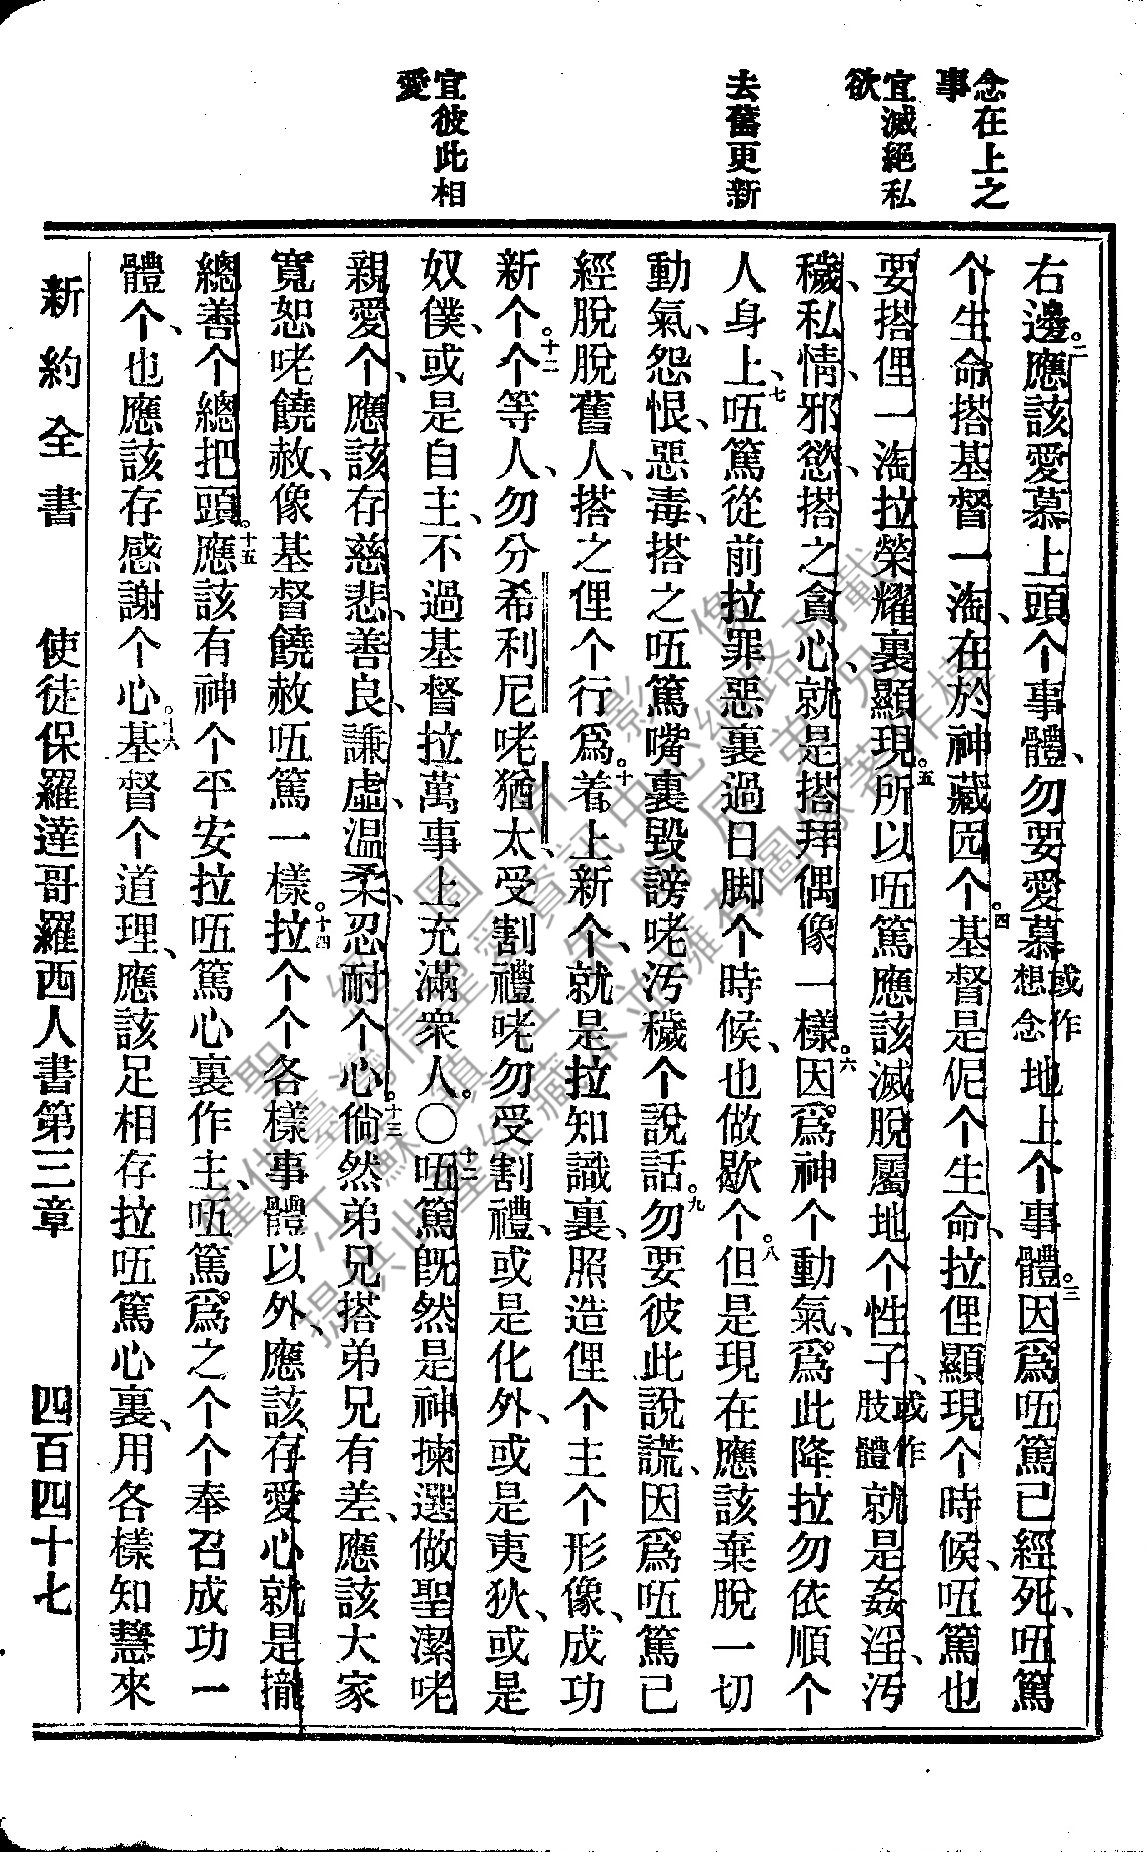 念在上之
事
宜滅絕私
欲
去舊更新
宜彼此相
愛
右邊。二應該愛慕上頭个事體、勿要愛慕或作想念地上个事體。三因爲㕶篤已經死、㕶篤
个生命搭基督一淘、在於神藏囥个。四基督是伲个生命、拉俚顯現个時候、㕶篤也
要搭俚一淘拉榮耀裏顯現。五所以㕶篤應該滅脫屬地个性子、或作肢體就是姦淫、汚
穢、私情、邪慾、搭之貪心、就是搭拜偶像一樣。六因爲神个動氣、爲此降拉勿依順个
人身上、七㕶篤從前拉罪惡裏過日脚个時候、也做歇个。八但是現在應該棄脫一切
動氣、怨恨、惡毒、搭之㕶篤嘴裏毀謗咾汚穢个說話。九勿要彼此說謊、因爲㕶篤已
經脫脫舊人、搭之俚个行爲。十着上新个、就是拉知識裏、照造俚个主个形像、成功
新个。十一个等人、勿分希利尼咾猶太、受割禮咾勿受割禮、或是化外、或是夷狄、或是
奴僕、或是自主、不過基督拉萬事上充滿衆人。〇十二㕶篤旣然是神揀選做聖潔咾
親愛个、應該存慈悲、善良、謙虛、温柔、忍耐个心。十三倘然弟兄搭弟兄有差、應該大家
寬恕咾饒赦、像基督饒赦㕶篤一樣。十四拉个个各樣事體以外、應該存愛心、就是攏
總善个總把頭。十五應該有神个平安拉㕶篤心裏作主、㕶篤爲之个个奉召成功一
體个、也應該存感謝个心。十六基督个道理、應該足相存拉㕶篤心裏、用各樣知慧來
新約全書 使徒保羅達哥羅西人書第三章 四百四十七